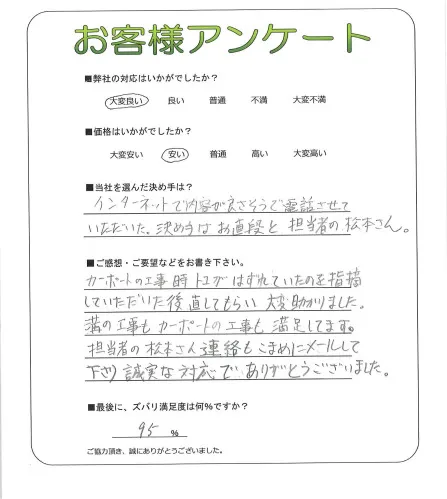 お客様アンケート
■弊社の対応はいかがでしたか？
大変良い 良い 普通 不満 大変不満
■価格はいかがでしたか？
大変安い 安い 普通 高い 大変高い
■当社を選んだ決め手は？
インターネットで内容が良さそうで電話させて
いただいた。決め手はお直段と担当者の松本さん。
■ご感想・ご要望などをお書き下さい。
カーポートの工事時トユがはずれていたのを指摘
していただいた後直してもらい大変助かりました。
溝の工事もカーポートの工事も満足してます。
担当者の松本さん連絡もこまめにメールして
下さり誠実な対応でありがとうございました。
■最後に、ズバリ満足度は何％ですか？
95 %
ご協力頂き、誠にありがとうございました。